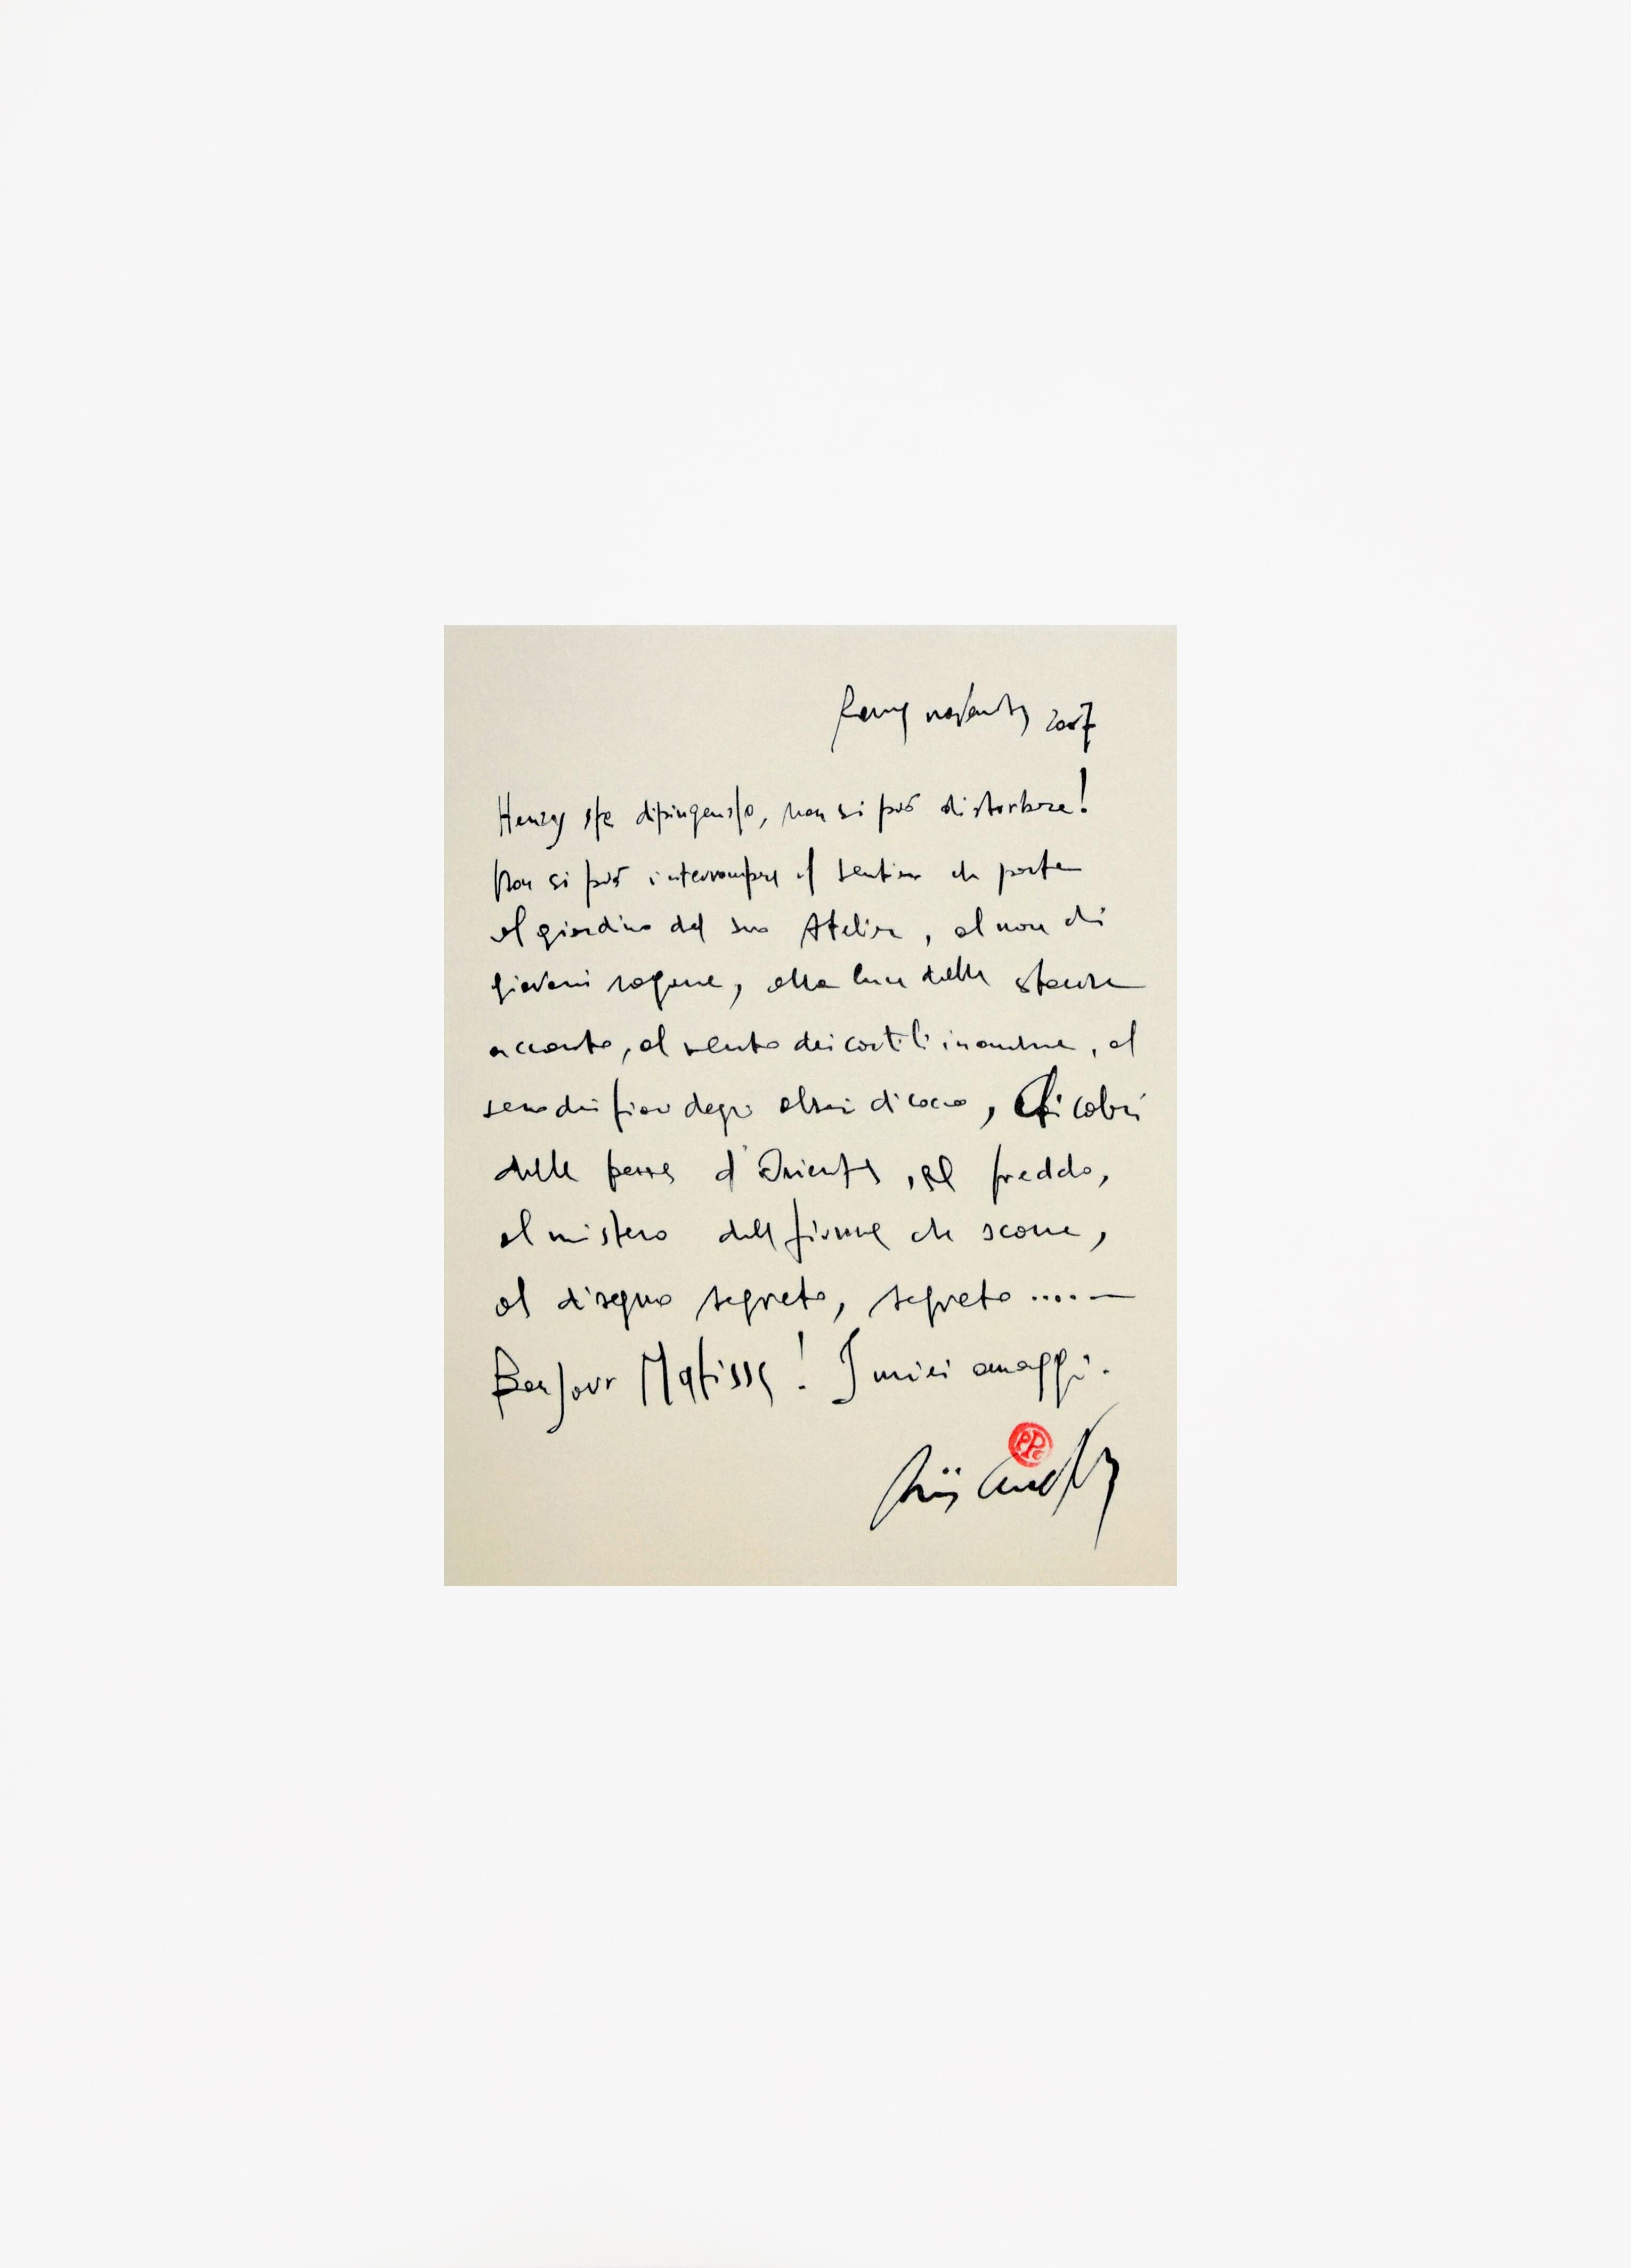 2007
Henry sta dipingendo, non si può disturbare!
Non si può interrompere il sentiero che porta
al giardino del suo Atelier, al nome di
giovani ragazze, alla luce della stanza
accanto, al vento dei cortili in ombra, al
seno dei fiori degli alberi di cocco, colori
delle perle d'Oriente, al freddo,
al mistero del fiume che scorre,
al disegno segreto, segreto .....—
Bonjour Matisse! I miei omaggi.